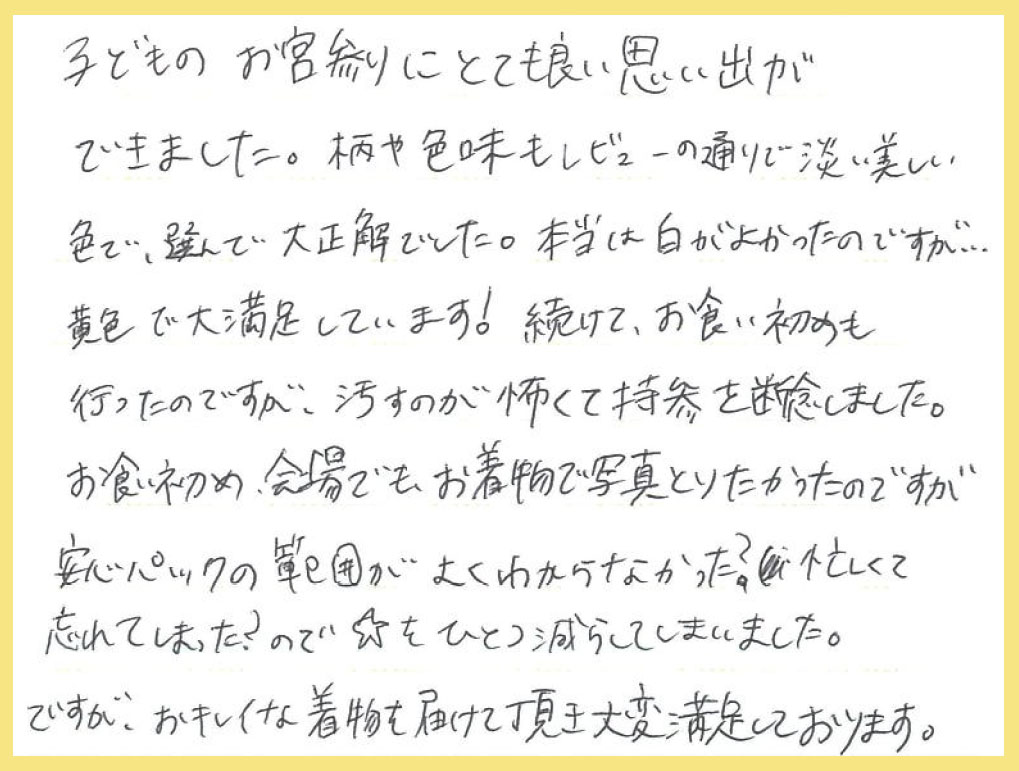 子どもの お宮参りにとても良い思い出が
できました。柄や色味もレビューの通りで淡い美しい
色で、選んで大正解でした。本当は白がよかったのですが…
黄色で大満足しています!続けて、お食い初めも
行ったのですが、汚すのが怖くて持参を断念しました。
お食い初め、会場でも、お着物で写真とりたかったのですが
安心パックの範囲がよくわからなかった?忙しくて
忘れてしまった?ので☆をひとつ減らしてしまいました。
ですが、おキレイな着物を届けて頂き大変満足しております。